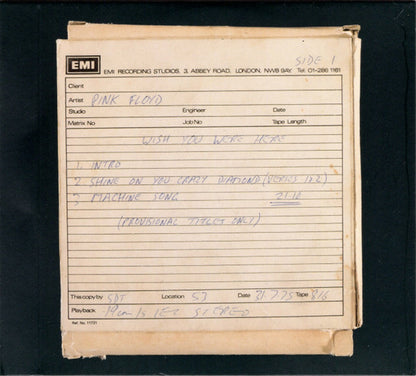 SIDE 1
EMI
EMI RECORDING STUDIOS, 3, ABBEY ROAD, LONDON, NW8 9AY Tel: 01-286 1161
Client
Artist PINK FLOYD
Studio Engineer Date
Matrix No Job No Tape Length
WISH YOU WERE HERE
1 INTRO
2 SHINE ON YOU CRAZY DIAMOND (VERSES 1&2)
3 MACHINE SONG 21-10
(PROVISIONAL TITLES ONLY)
This copy by SDT Location 53 Date 31 7 75 Tape 816
Playback 19 cm/s IEC STEREO
Ref. No. 11731